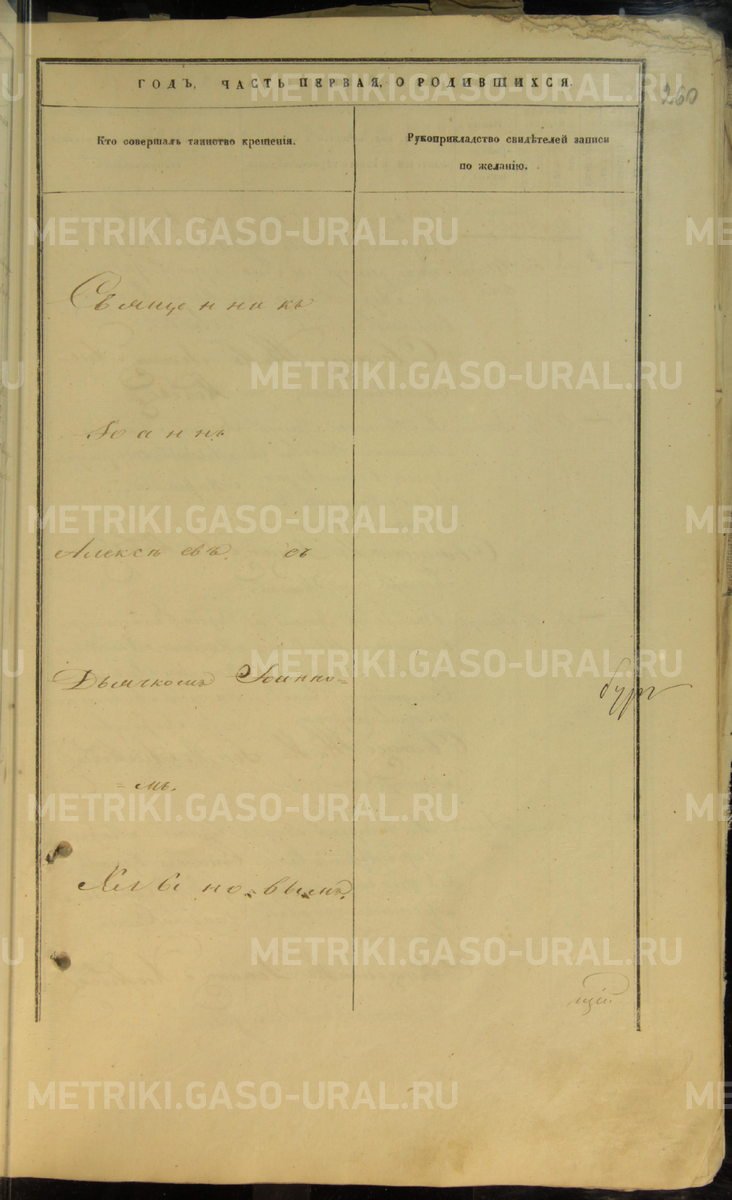 ГОДЪ, ЧАСТЬ ПЕРВАЯ, О РОДИВШИХСЯ.
260
Кто совершалъ таинство крещенія.
Рукоприкладство свидѣтелей записи
по желанію.
METRIKI.GASO-URAL.RU
Священникъ
Іоаннъ
Алексѣевъ. съ
Дьячкомъ Іоанно=
бург
=мъ.
Хлыновымъ.
щій